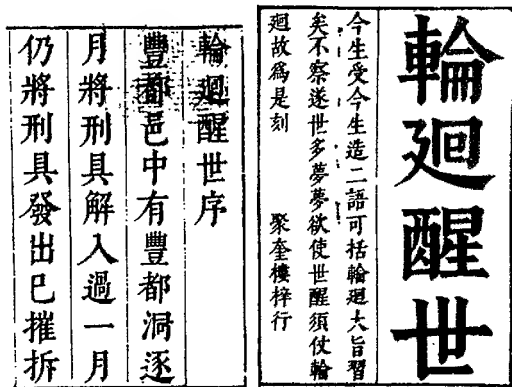 輪廻醒世
今生受今生造二語可括輪廻大旨習
矣不察遂世多夢夢欲使世醒須仗輪
廻故爲是刻 聚奎樓梓行
輪廻醒世序
豐都邑中有豐都洞逐
月將刑具解入過一月
仍將刑具發出已摧拆